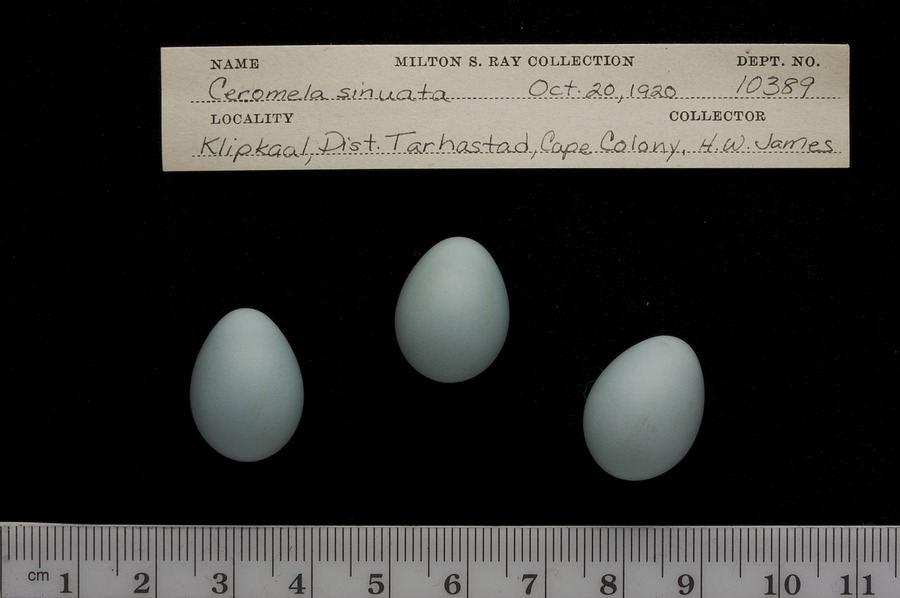 NAME MILTON S. RAY COLLECTION DEPT. NO.
Ceromela sinuata Oct. 20, 1920 10389
LOCALITY COLLECTOR
Klipkaal, Dist. Tarhastad, Cape Colony. H.W. James
cm 1 2 3 4 5 6 7 8 9 10 11